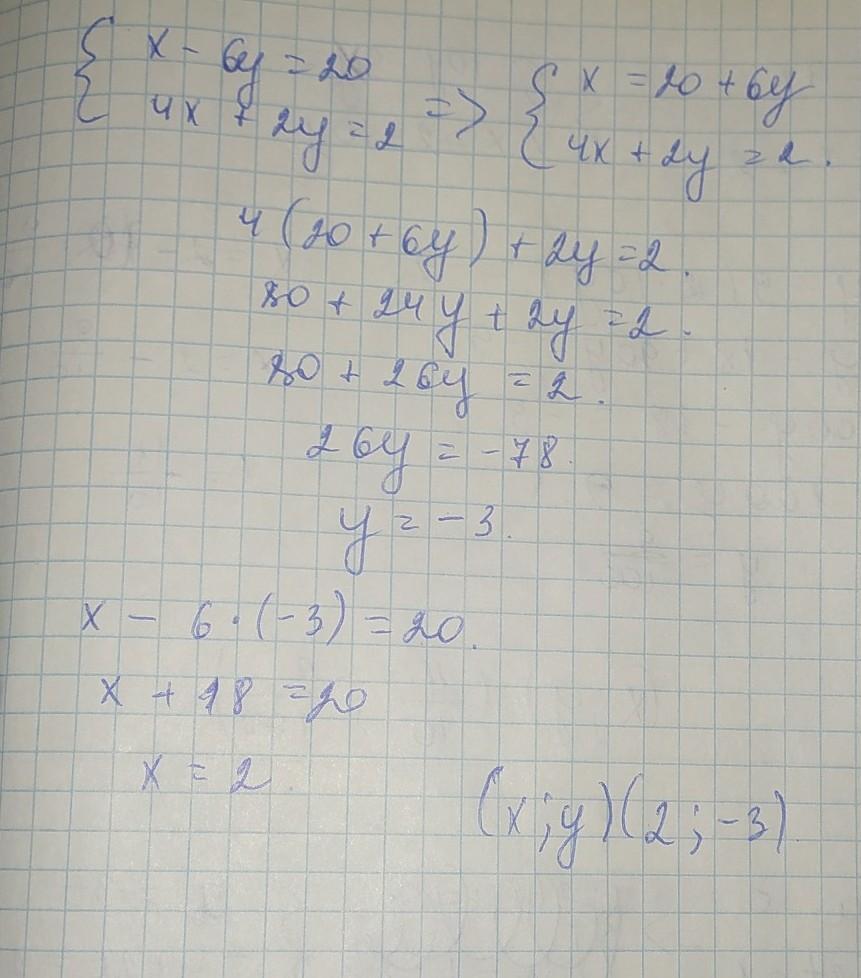 { x - 6y = 20
4x + 2y = 2 => { x = 20 + 6y
4x + 2y = 2.
4(20 + 6y) + 2y = 2.
80 + 24y + 2y = 2.
80 + 26y = 2.
26y = -78.
y = -3.
x - 6·(-3) = 20.
x + 18 = 20
x = 2.
(x; y)(2; -3).